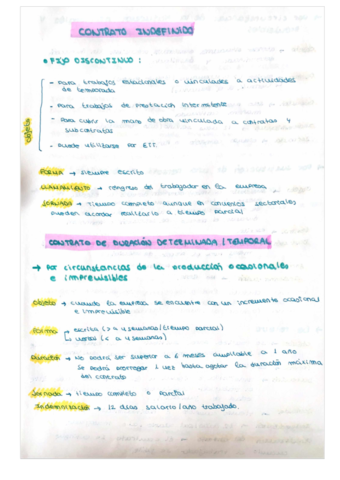 CONTRATO INDEFINIDO
• FIJO DISCONTINUO:
- para trabajos estacionales o vinculados a actividades
de temporada
- para trabajos de prestación intermitente
- Para cubrir la mano de obra vinculada a contratas y
subcontratas
- puede utilizarse por ETT.
objeto
FORMA → siempre escrita
LLAMAMIENTO → congreso del trabajador en la empresa
JORNADA → Tiempo completo aunque en convenios sectoriales
pueden acordar realizarlo a tiempo parcial
CONTRATO DE DURACIÓN DETERMINADA / TEMPORAL
→ Por circunstancias de la producción ocasionales
e imprevisibles
Objeto → cuando la empresa se encuentre con un incremento ocasional
e imprevisible
Forma → escrita (> a 4 semanas/tiempo parcial)
verbal (< a 4 semanas)
Duración → No podrá ser superior a 6 meses ampliable a 1 año
Se podrá prorrogar 1 vez hasta agotar la duración máxima
del contrato
Jornada → tiempo completo o parcial
Indemnización → 12 días salario/año trabajado.